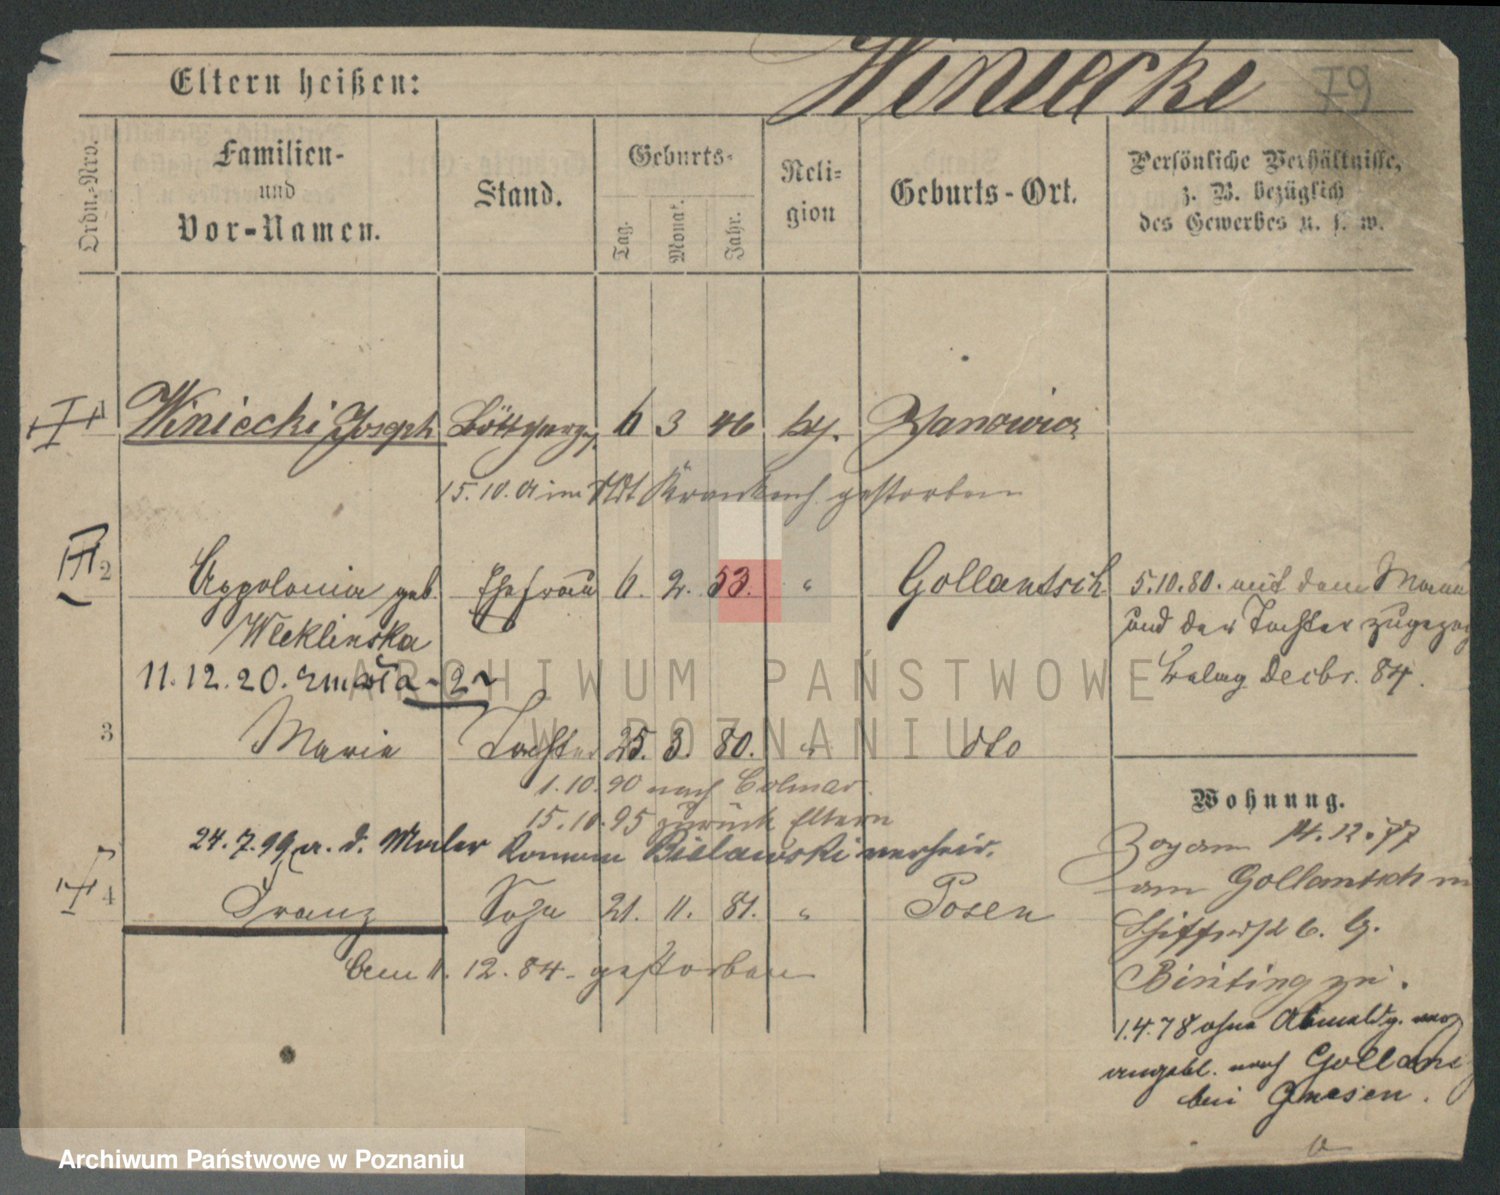 Eltern heißen:
Winiecke 79
Ordn.-Nro.
Familien-
und
Vor-Namen.
Stand.
Geburts-
Tag.
Monat.
Jahr.
Reli-
gion
Geburts-Ort.
Persönliche Verhältnisse,
z. B. bezüglich
des Gewerbes u. s. w.
1 Winiecki Joseph 6 3 46 Janowicz
15.10. im Krankenh gestorben
2 Appolonia geb. Ehefrau 6. 2. 53. " Gollantsch
Wecklinska
11.12.20. zmarła -2-
5.10.80. mit dem Mann
und der Tochter zugezog
Decbr. 84.
3 Marie Tochter 25. 3. 80. " dto
1.10.90 nach Colmar.
15.10.95 zurück Eltern
24.7.99 a. d. Maler Roman Bielawski verheir.
4 Franz Sohn 21. 11. 81. " Posen
Am 11. 12. 84. gestorben
Wohnung.
Zog am 14.12.77
Gollantsch
Schifferstr 6. b.
zu.
1.4.78 ohne Abmeldg.
angebl. nach Gollant
bei Gnesen.
ARCHIWUM PAŃSTWOWE
W POZNANIU
Archiwum Państwowe w Poznaniu